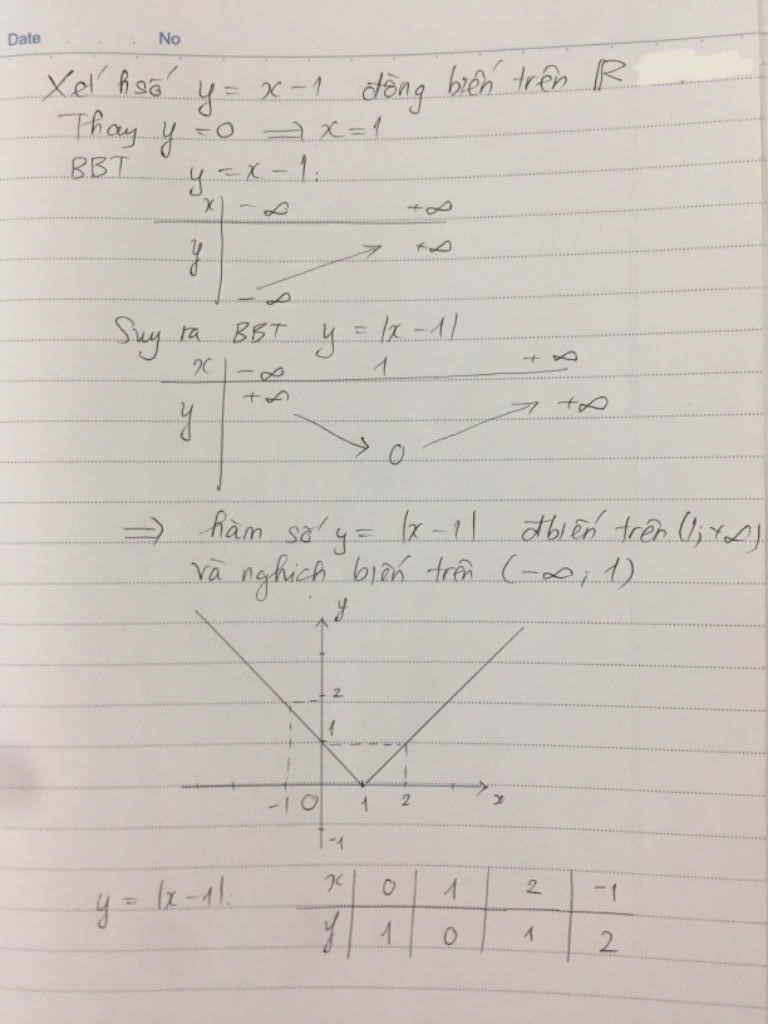 Date No
Xét hsố y = x - 1 đồng biến trên ℝ
Thay y = 0 ⟹ x = 1
BBT y = x - 1:
x -∞ +∞
y +∞
-∞
Suy ra BBT y = |x - 1|
x -∞ 1 +∞
y +∞ +∞
0
⟹ hàm số y = |x - 1| đbiến trên (1; +∞)
và nghịch biến trên (-∞; 1)
y
2
1
-1 0 1 2 x
-1
y = |x - 1|: x 0 1 2 -1
y 1 0 1 2